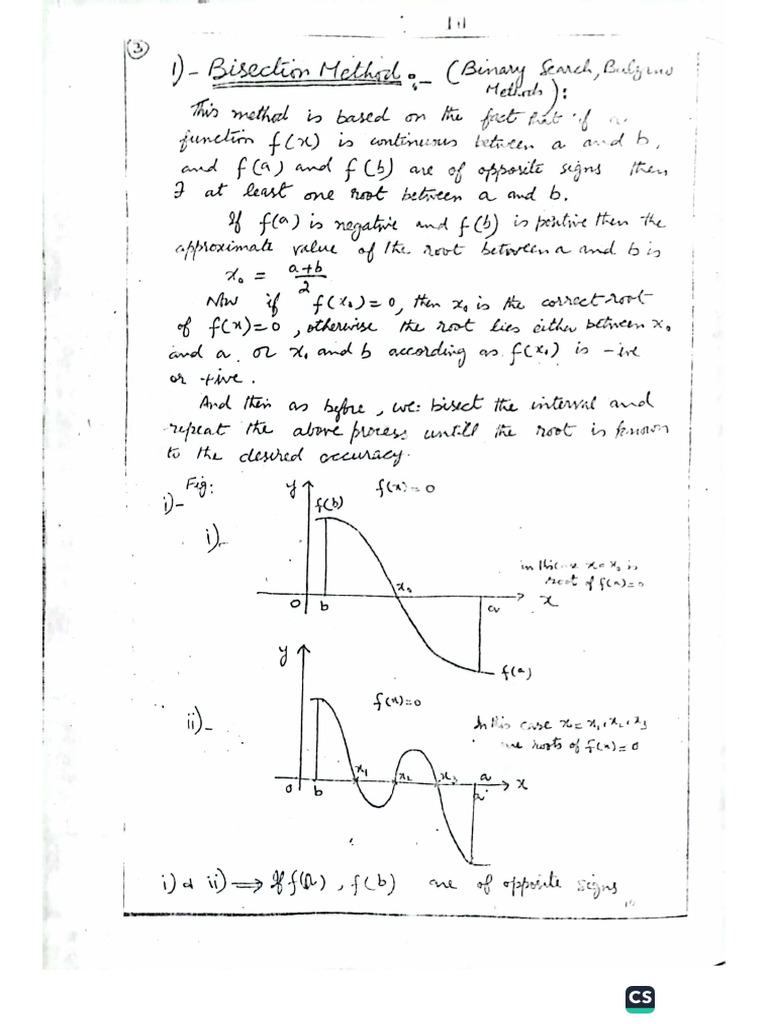 ③
1)- Bisection Method :- (Binary Search, Bulzano
Methods):
This method is based on the fact that if a
function f(x) is continuous between a and b,
and f(a) and f(b) are of opposite signs then
∃ at least one root between a and b.
If f(a) is negative and f(b) is positive then the
approximate value of the root between a and b is
x₀ = a+b/2
Now if f(x₀) = 0, then x₀ is the correct root
of f(x)=0, otherwise the root lies either between x₀
and a or x₀ and b according as f(x₀) is -ive
or +ive.
And then as before, we bisect the interval and
repeat the above process untill the root is known
to the desired accuracy.
Fig:
i)-
i)-
y
f(x)=0
f(b)
in this case x=x₀ is
root of f(x)=0
x₀
O
b
a
x
f(a)
y
ii)-
f(x)=0
In this case x=x₁,x₂,x₃
are roots of f(x)=0
x₁
x₂
x₃
a
x
O
b
i) & ii) ⟹ If f(a), f(b) are of opposite signs
CS